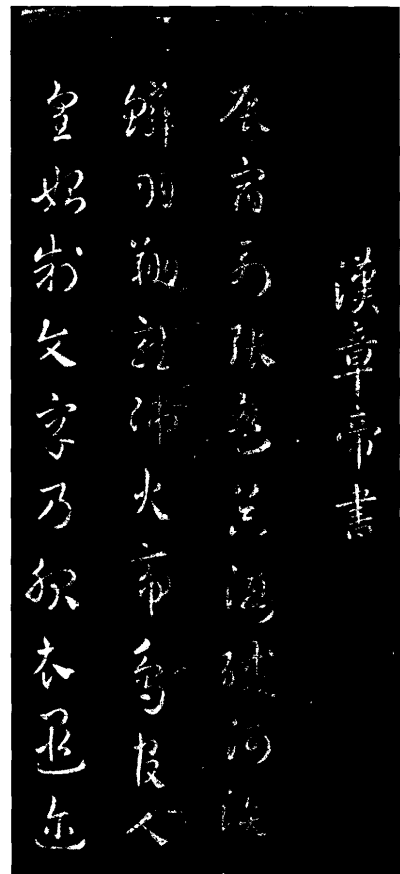 漢章帝書
辰宿列張盈昃海鹹河淡
鱗羽翔龍師火帝鳥官人
皇始制文字乃服衣遐迩